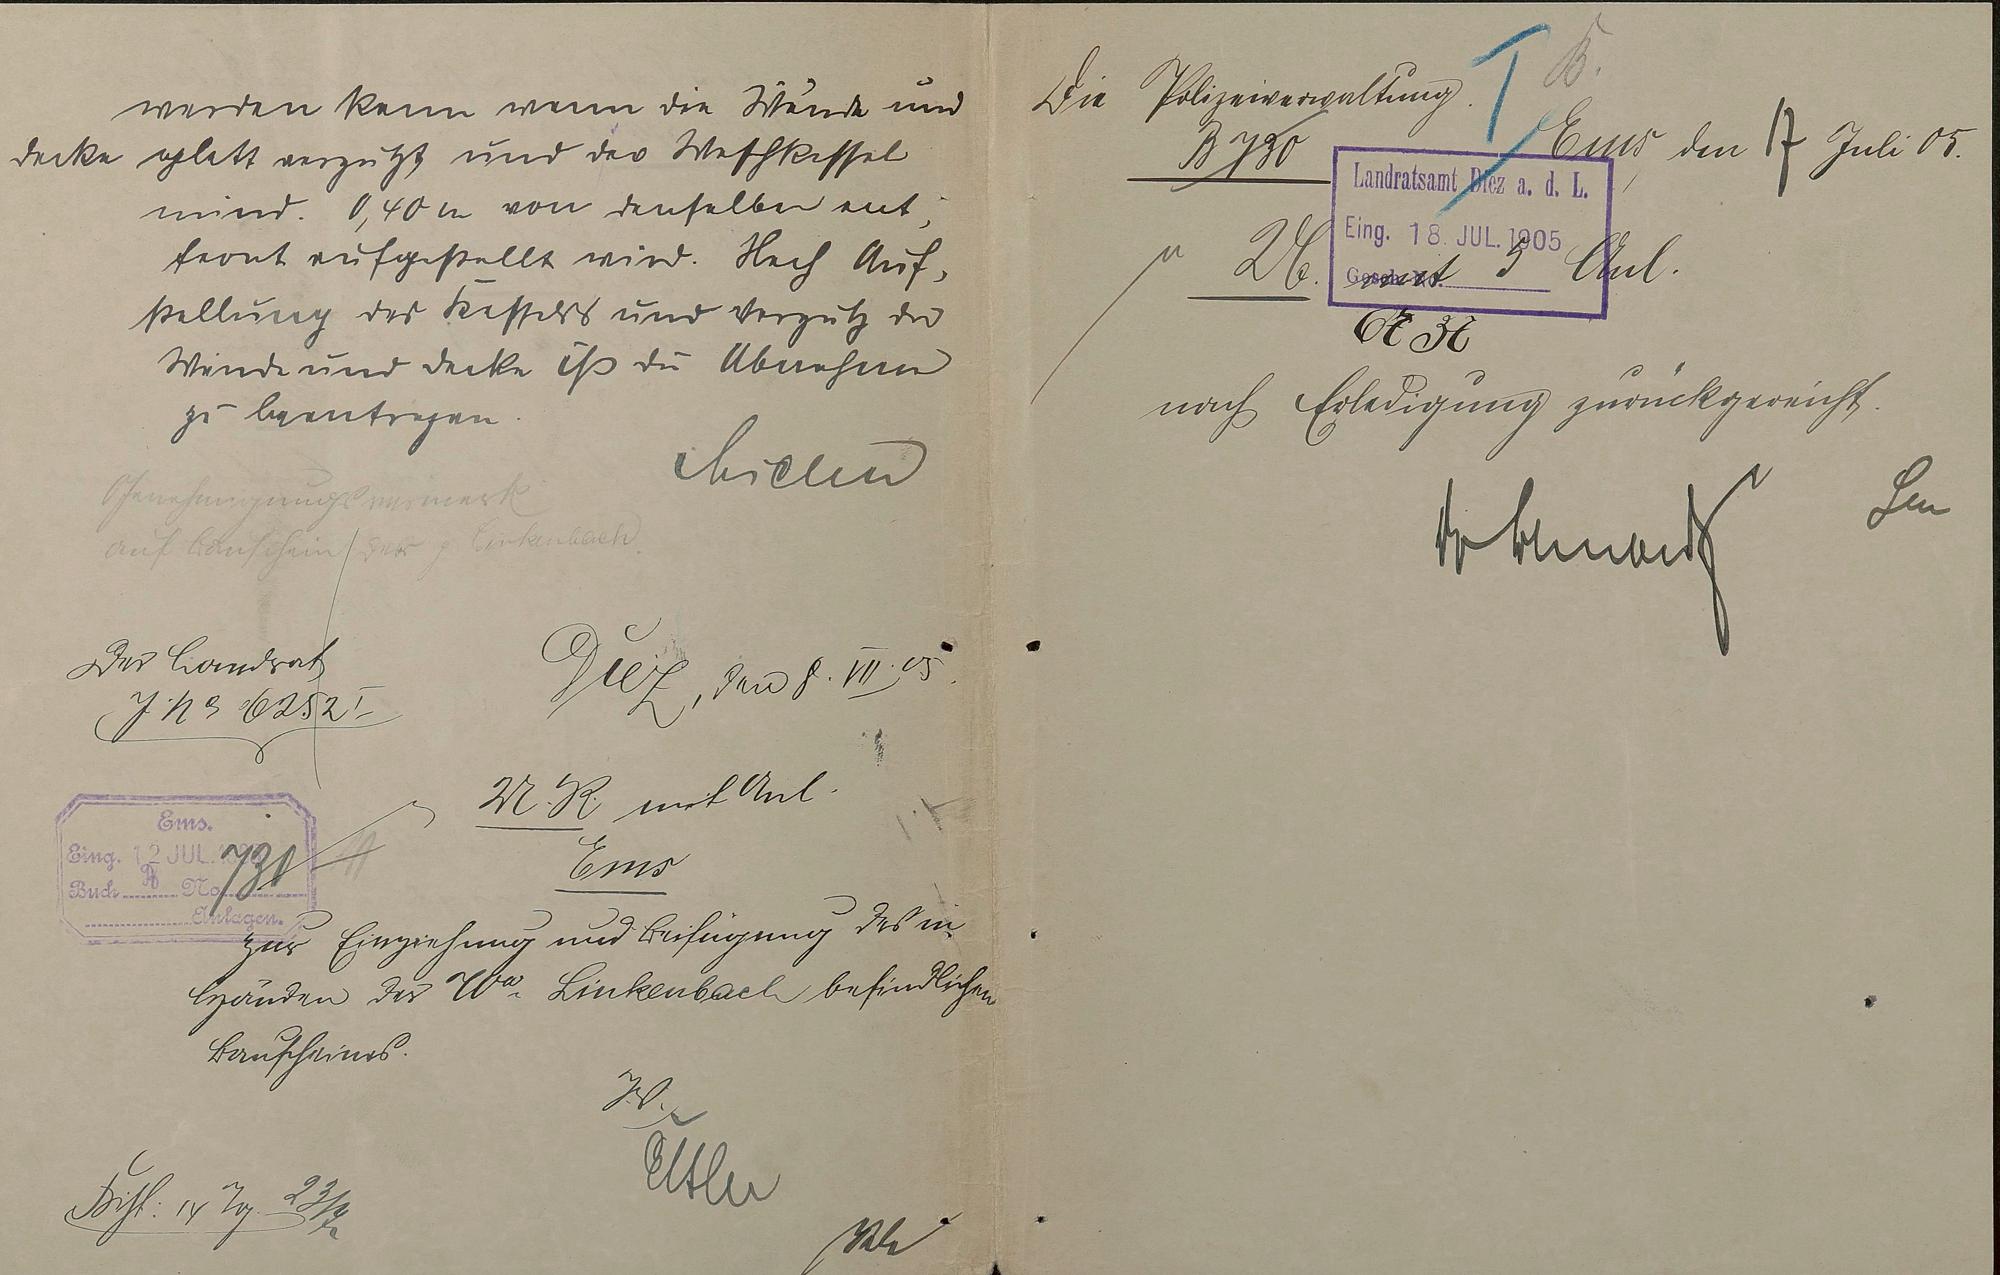 werden kann wenn die Wände und
decke glatt verputzt und der Waschkessel
mind. 0,40 m von denselben ent,
fernt aufgestellt wird. Nach Auf,
stellung des Kessels und Verputz der
Wände und decke ist die Abnahme
zu beantragen.
Genehmigungsvermerk
auf Bauschein des p Linkenbach.
Der Landrat
J. No 6252 I
Diez, den 8. VII. 05.
U. R. mit Anl.
Ems
Ems.
Eing. 12 JUL.
Buch B No 730
Anlagen.
zur Einziehung und Beifügung des in
Händen der Wwe. Linkenbach befindlichen
Bauscheines.
J.V.
Frist: 14 Tg. 23/7
Die Polizeiverwaltung.
B 730
T
B.
Ems, den 17 Juli 05.
Landratsamt Diez a. d. L.
Eing. 18. JUL. 1905
Gesch. Nr.
mit 5 Anl.
nach Erledigung zurückgereicht.